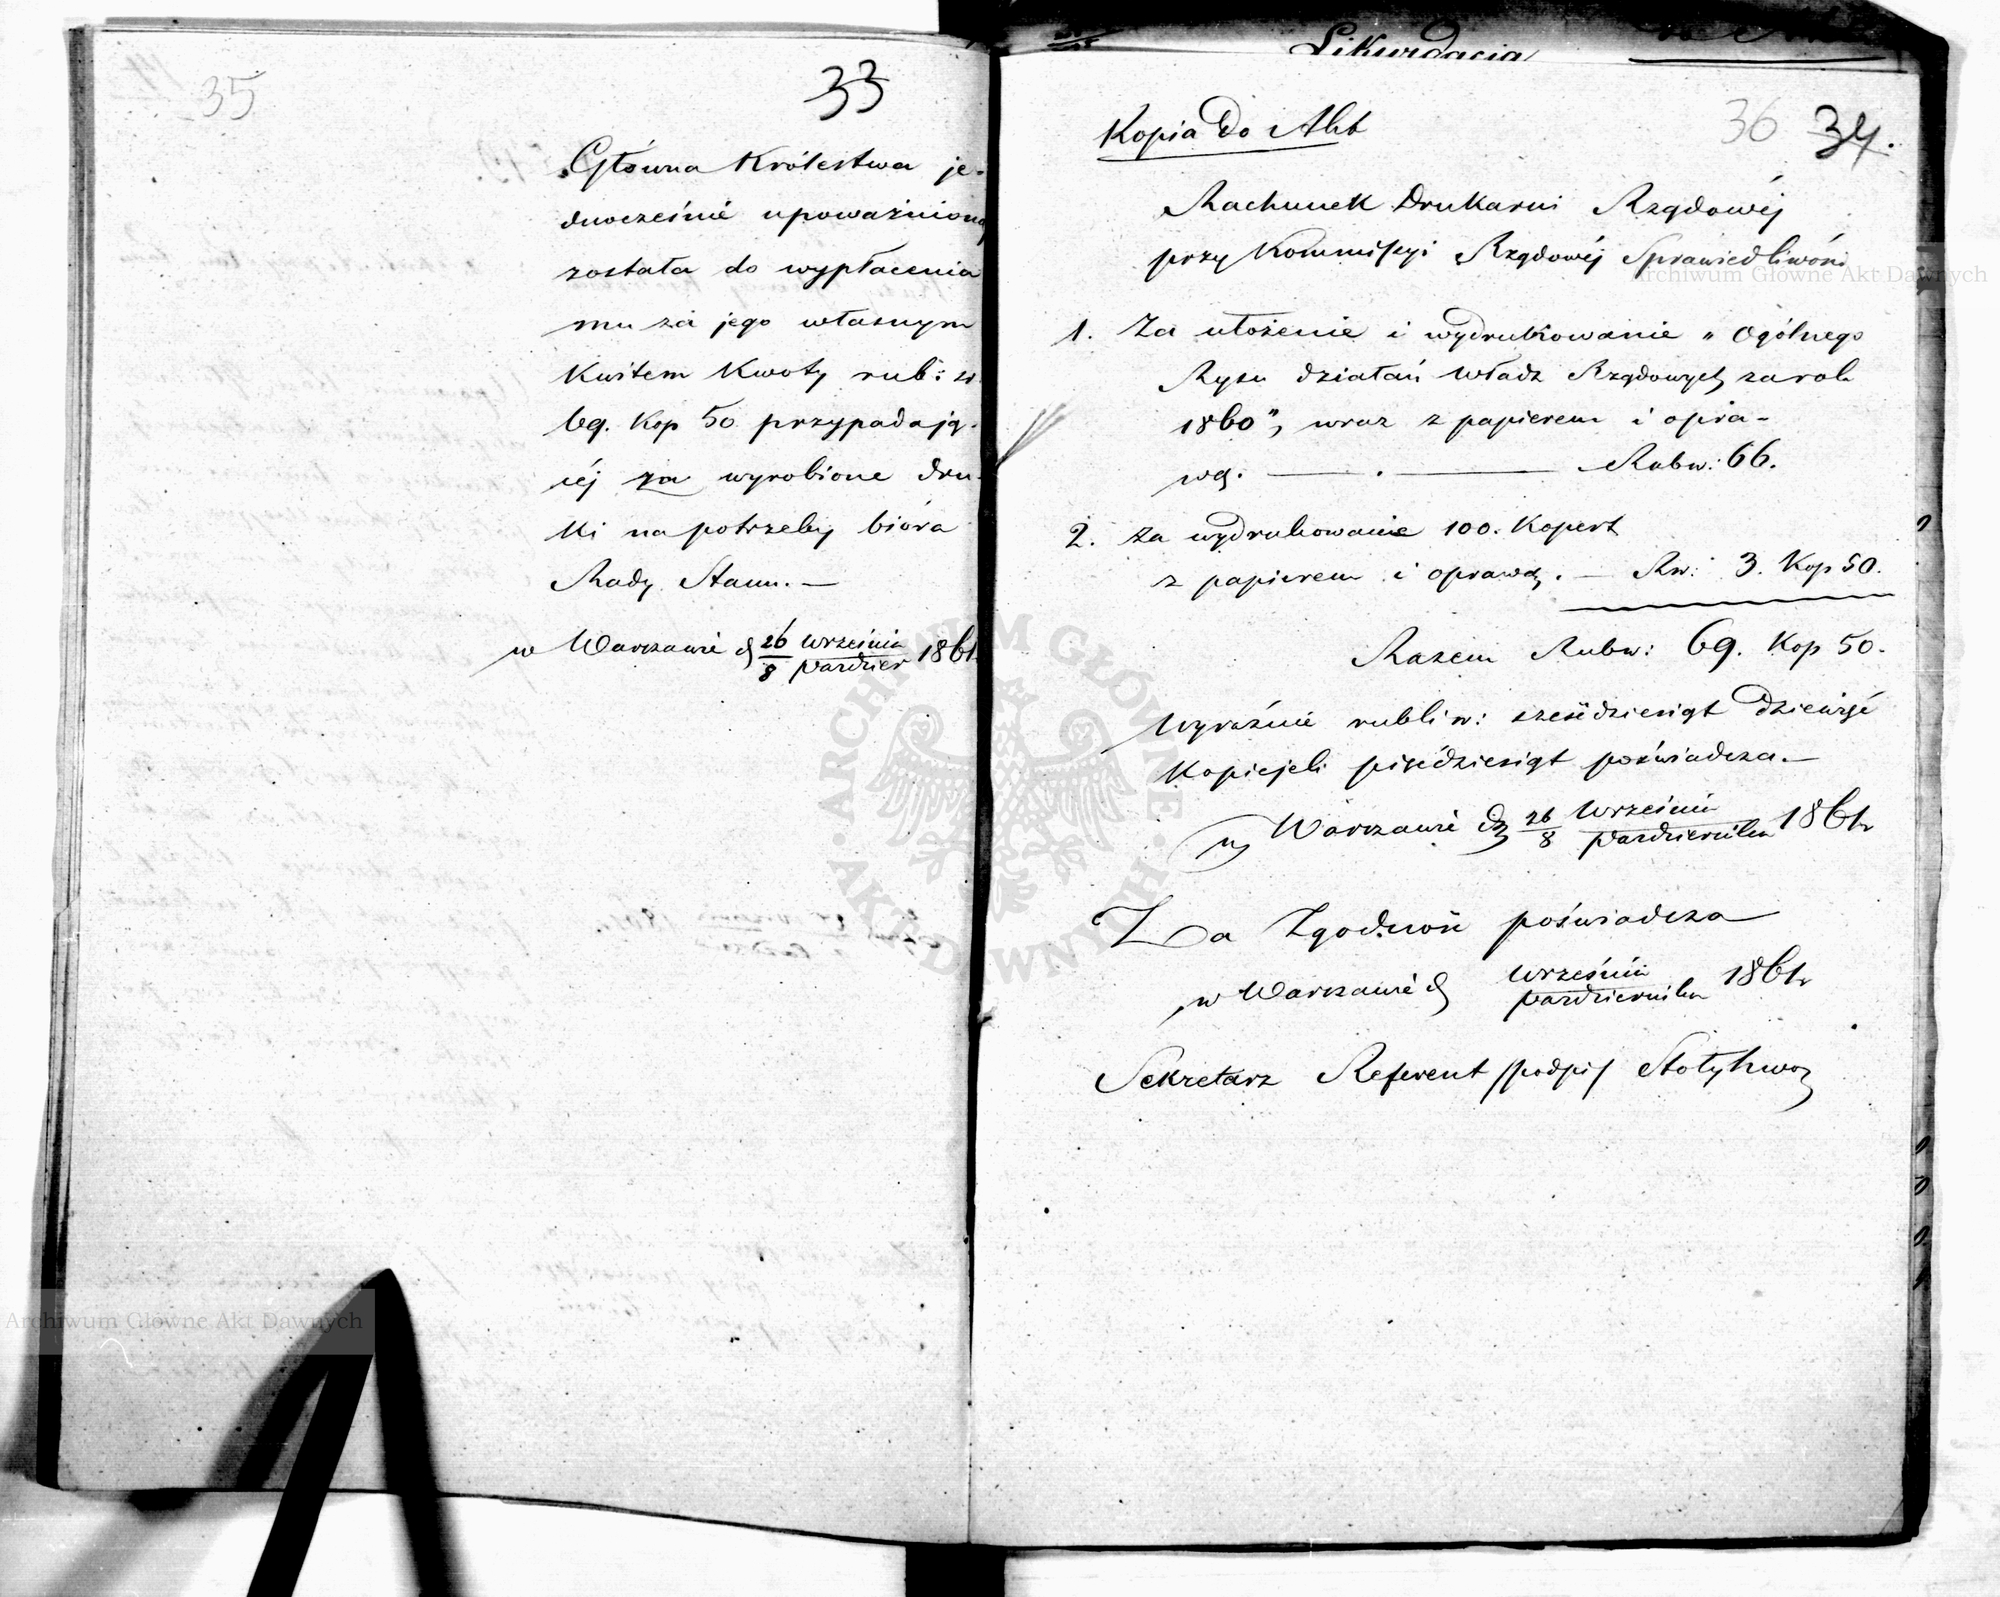 35
33
Główna Królestwa je-
dnocześnie upoważnioną
została do wypłacenia
mu za jego własnym
Kwitem Kwoty rub: sr.
69. Kop 50 przypadają-
céj za wyrobione dru-
ki na potrzeby bióra
Rady Stanu. —
w Warszawie d 26/8 Września/Paździer 1861
Likwidacia
Kopia do Akt
36 34.
Rachunek Drukarni Rządowéj
przy Kommissyi Rządowéj Sprawiedliwości
1. Za ułożenie i wydrukowanie „Ogólnego
Rysu działań Władz Rządowych za rok
1860", wraz z papierem i opra-
wą. — . — Rubsr: 66.
2. Za wydrukowanie 100. Kopert
z papierem i oprawą. — Rsr: 3. Kop 50.
Razem Rubsr: 69. Kop 50.
Wyraźnie rubli sr: sześćdziesiąt dziewięć
Kopiejek pięćdziesiąt poświadcza. —
w Warszawie d 26/8 Września/Października 1861r
Za Zgodność poświadcza
w Warszawie d Września/Października 1861r
Sekretarz Referent /podpis/ Stołyhwo
ARCHIWUM GŁÓWNE AKT DAWNYCH
Archiwum Główne Akt Dawnych
Archiwum Główne Akt Dawnych